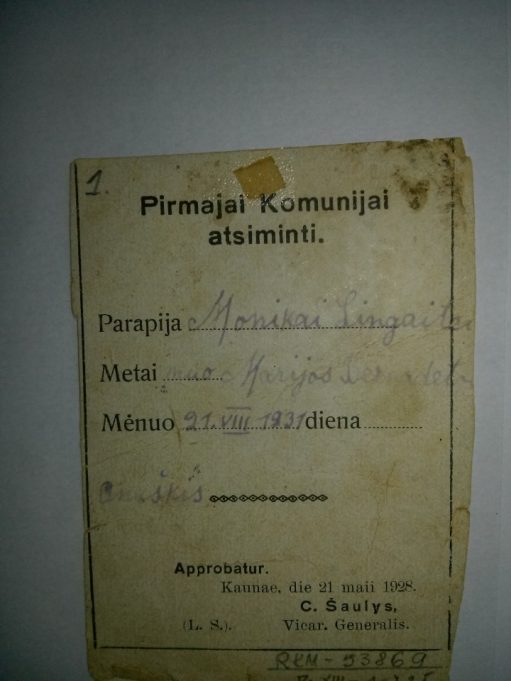 1.
Pirmajai Komunijai
atsiminti.
Parapija Monikai Lingaitei
Metai nuo Marijos
Mėnuo 21.VIII 1931 diena
Approbatur.
Kaunae, die 21 maii 1928.
C. Šaulys,
(L. S.). Vicar. Generalis.
RKM-53869